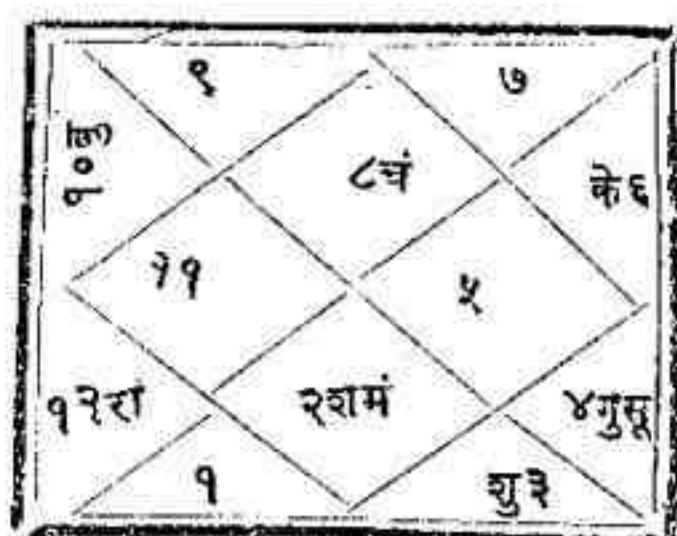 ९ ७
१०
८चं
के६
११
५
१२रा
२शमं
४गुसू
१
शु३